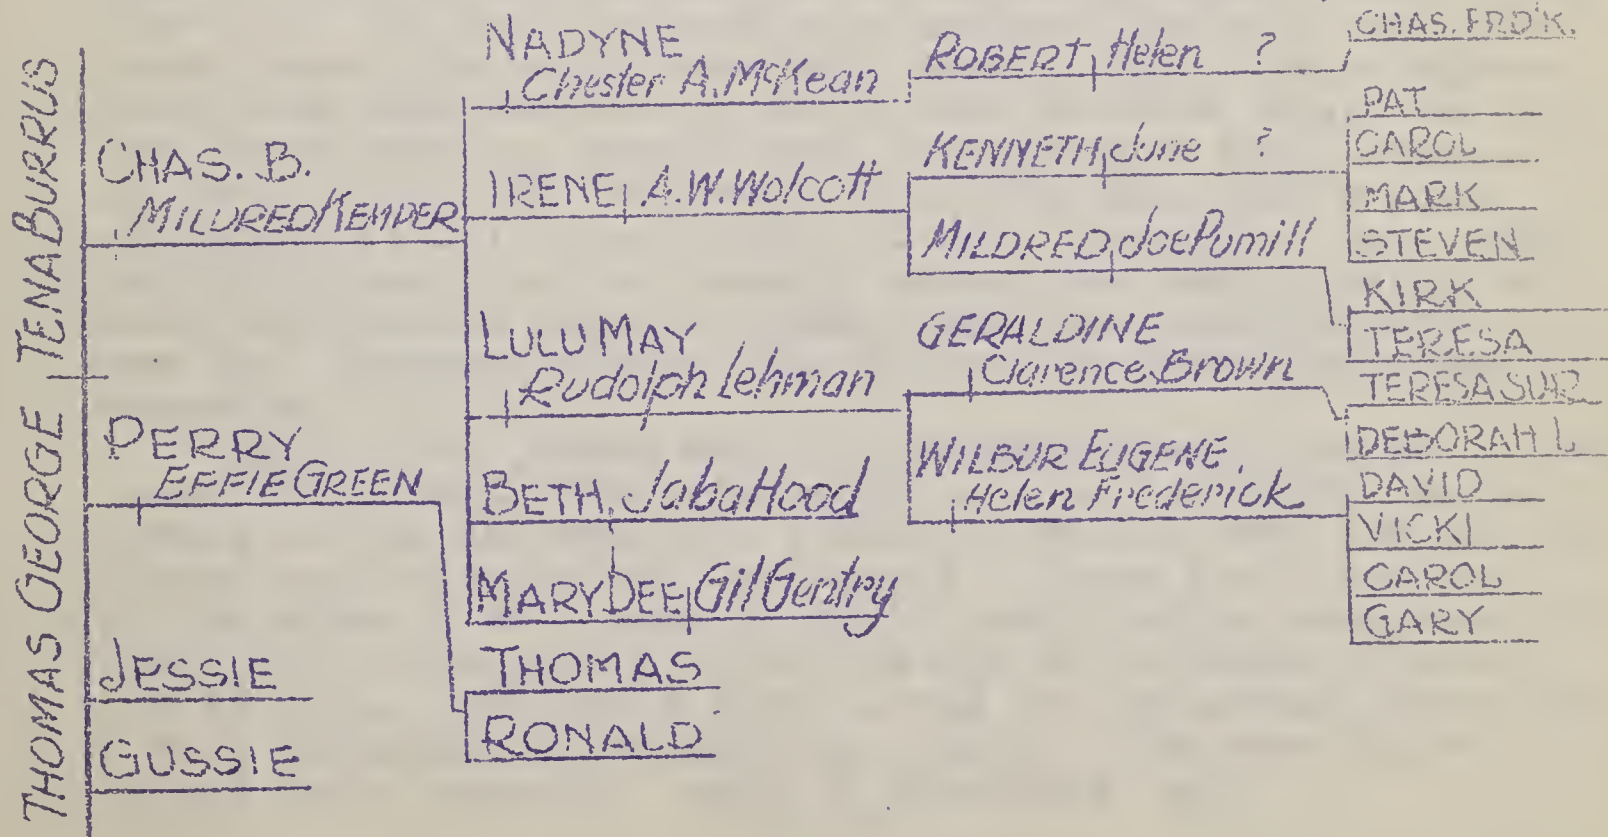 THOMAS GEORGE TENA BURRUS
CHAS. B.
MILDRED KEMPER
PERRY
EFFIE GREEN
JESSIE
GUSSIE
NADYNE
Chester A. McKean
IRENE A.W. Wolcott
LULU MAY
Rudolph Lehman
BETH Jaba Hood
MARY DEE Gil Gentry
THOMAS
RONALD
ROBERT Helen ?
KENNETH June ?
MILDRED Joe Pumill
GERALDINE
Clarence Brown
WILBUR EUGENE
Helen Frederick
CHAS. FRD'K.
PAT
CAROL
MARK
STEVEN
KIRK
TERESA
TERESA
DEBORAH L
DAVID
VICKI
CAROL
GARY